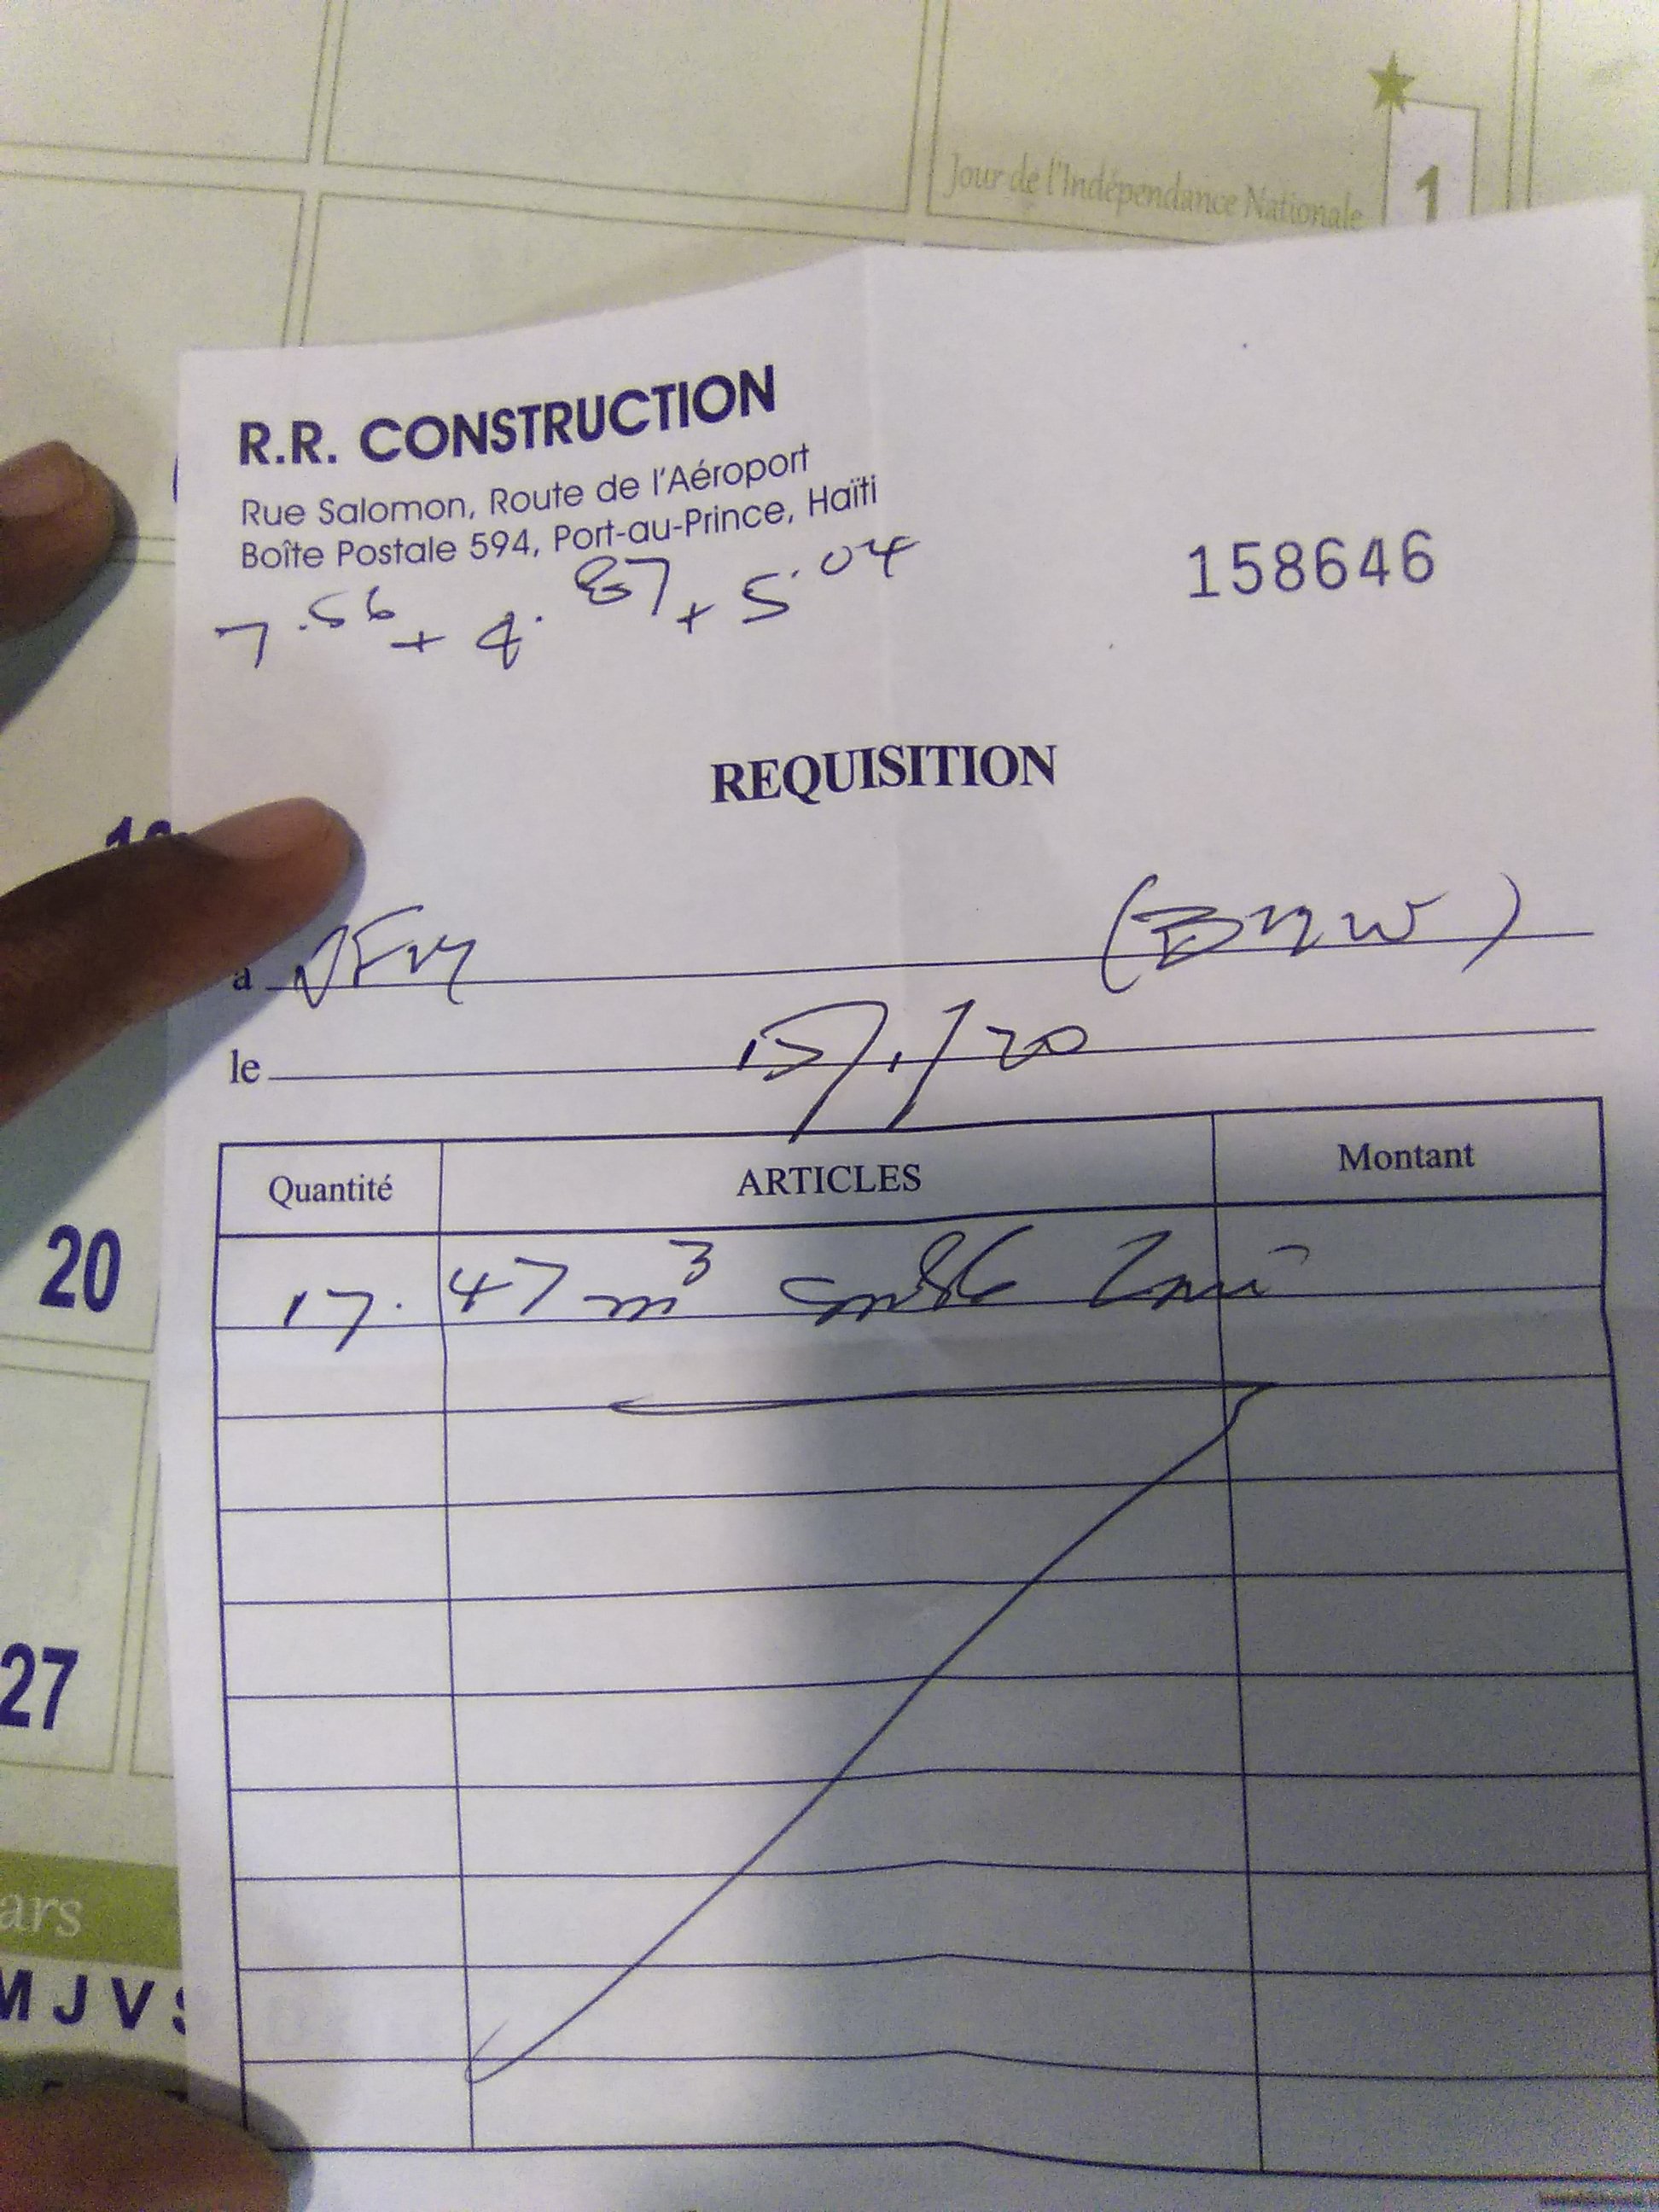 Jour de l'Indépendance Nationale
1
R.R. CONSTRUCTION
Rue Salomon, Route de l'Aéroport
Boîte Postale 594, Port-au-Prince, Haïti
7.56 + 4.87 + 5.04
158646
REQUISITION
à JFM (BMW)
le 15/1/20
Quantité ARTICLES Montant
17.47 m³
20
27
ars
M J V S